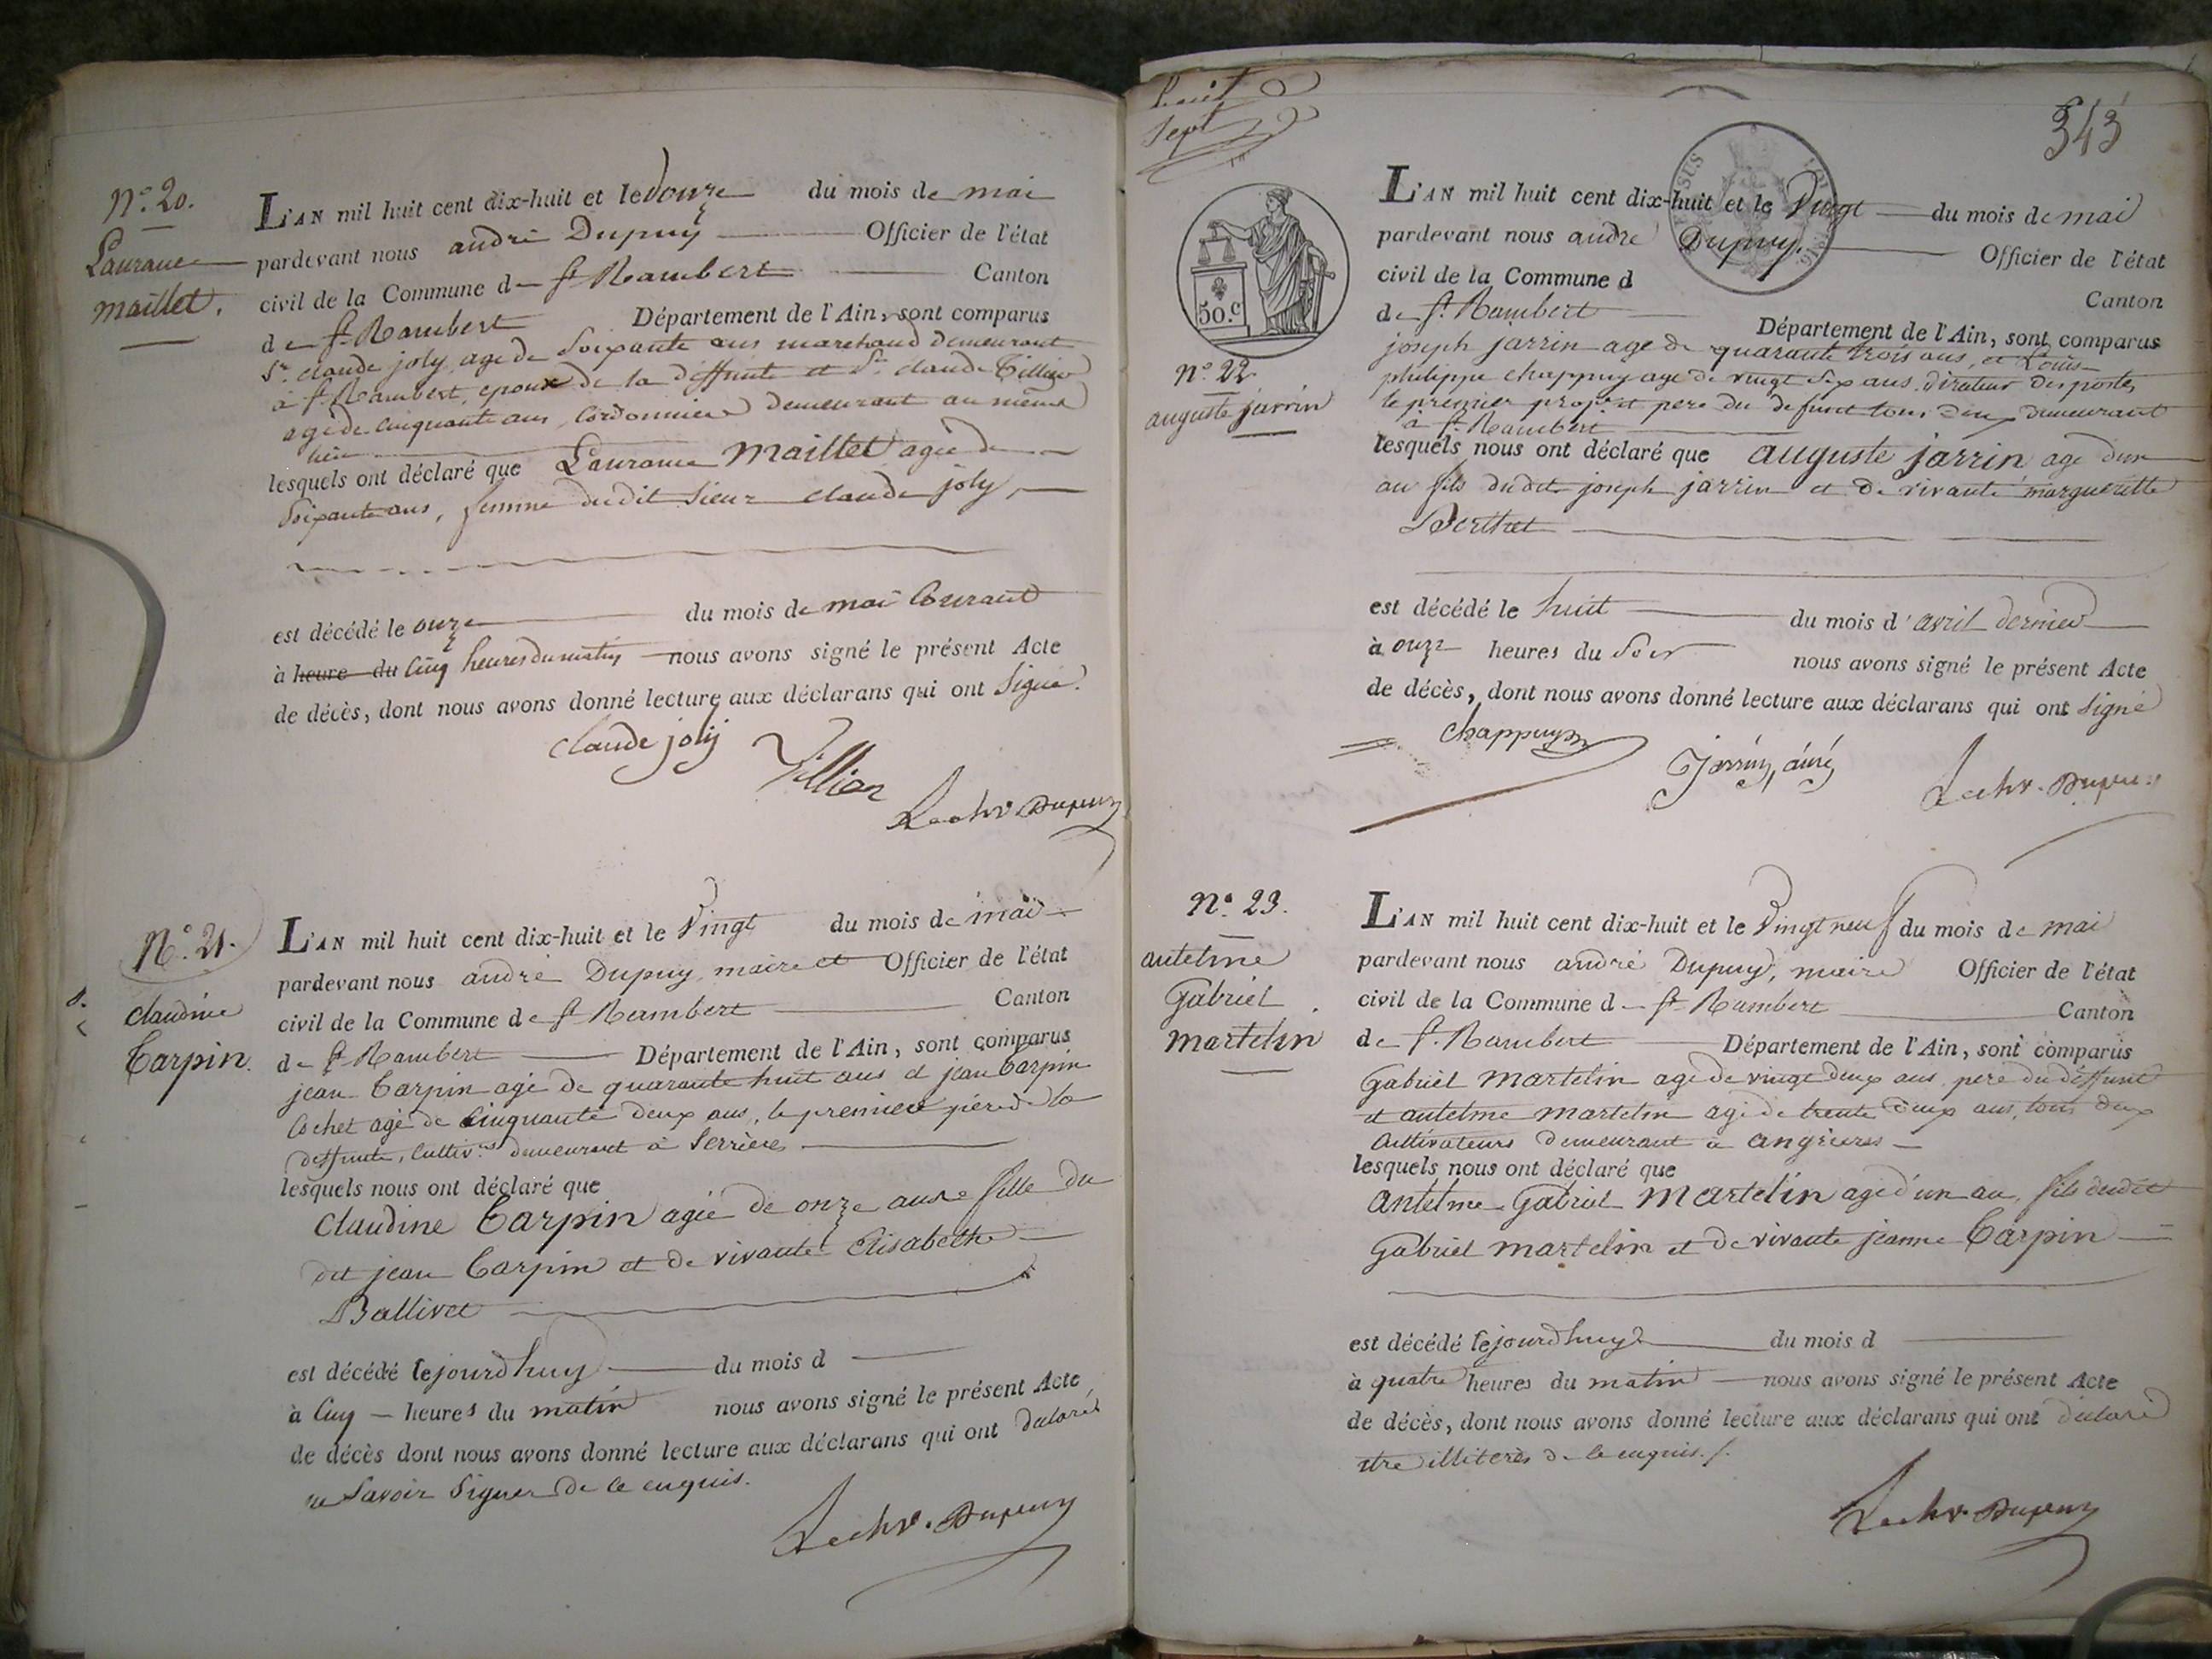 N.° 20.
Lauranne
maillet.
L'AN mil huit cent dix-huit et le douze du mois de mai
pardevant nous andré Dupuy Officier de l'état
civil de la Commune de St Rambert Canton
de St Rambert Département de l'Ain, sont comparus
Sr. claude joly, agé de Soixante ans marchand demeurant
à St Rambert, epoux de la deffunte et Sr. claude Tillier
agé de cinquante ans, Cordonnier demeurant au même
lieu
lesquels ont déclaré que Lauranne maillet agée de
Soixante ans, femme dudit Sieur claude joly,
est décédé le onze du mois de mai Courant
à heure du Cinq heures du matin nous avons signé le présent Acte
de décès, dont nous avons donné lecture aux déclarans qui ont Signé.
claude joly Tillier
Dupuy
N.° 21.
claudine
Carpin.
L'AN mil huit cent dix-huit et le Vingt du mois de mai
pardevant nous andré Dupuy, maire et Officier de l'état
civil de la Commune de St Rambert Canton
de St Rambert Département de l'Ain, sont comparus
jean Carpin agé de quarante huit ans et jean Carpin
Cochet agé de Cinquante deux ans, le premier père de la
deffunte, Cultiv.rs demeurant à Serrières
lesquels nous ont déclaré que
Claudine Carpin agée de onze ans fille du
dit jean Carpin et de vivante Elisabethe
Ballivet
est décédé lejourdhuy du mois d
à Cinq heures du matin nous avons signé le présent Acte
de décès dont nous avons donné lecture aux déclarans qui ont déclaré
ne Savoir Signer de ce enquis.
Dupuy
huit
Sept
343
50.c
n.° 22.
auguste jarrin
L'AN mil huit cent dix-huit et le Vingt du mois de mai
pardevant nous andré Dupuy. Officier de l'état
civil de la Commune d Canton
de St Rambert Département de l'Ain, sont comparus
joseph jarrin agé de quarante trois ans, et Louis
philippe chappuy agé de vingt Six ans, directeur des postes
le premier prop.re et pere du defunt tous deux demeurant
à St Rambert
lesquels nous ont déclaré que auguste jarrin agé dun
an fils dudit joseph jarrin et de vivante marguerite
Berthet
est décédé le huit du mois d'avril dernier
à onze heures du Soir nous avons signé le présent Acte
de décès, dont nous avons donné lecture aux déclarans qui ont Signé
Chappuy
Jarrin, ainé
Dupuy
n.° 23.
antelme
Gabriel
martelin
L'AN mil huit cent dix-huit et le Vingt neuf du mois de mai
pardevant nous andré Dupuy, maire Officier de l'état
civil de la Commune de St Rambert Canton
de St. Rambert Département de l'Ain, sont comparus
Gabriel martelin agé de vingt deux ans pere du deffunt
et antelme martelin agé de trente deux ans, tous deux
Cultivateurs demeurant à angrieres
lesquels nous ont déclaré que
antelme Gabriel martelin agé d'un an, fils dudit
Gabriel martelin et de vivante jeanne Carpin
est décédé lejourdhuy du mois d
à quatre heures du matin nous avons signé le présent Acte
de décès, dont nous avons donné lecture aux déclarans qui ont déclaré
etre illiterés de ce enquis.
Dupuy